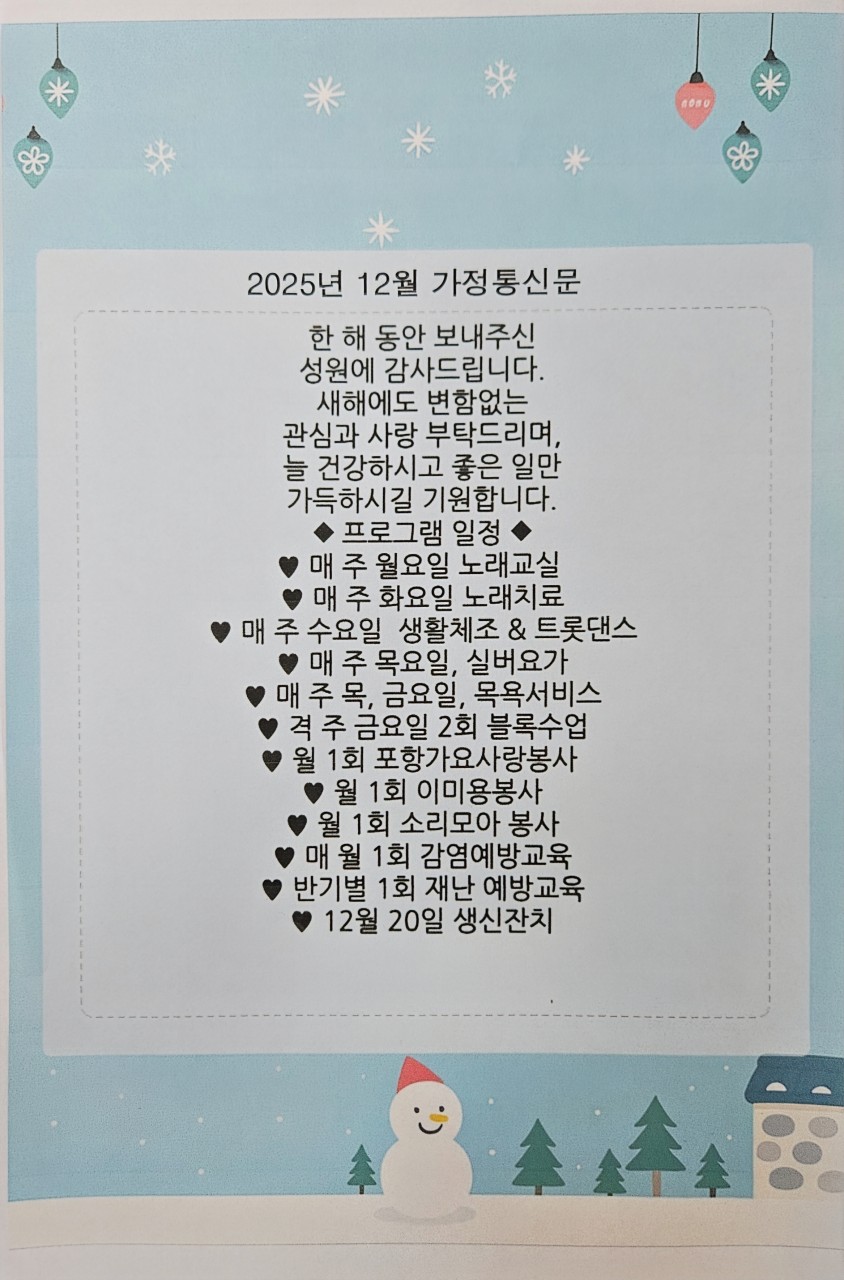 2025년 12월 가정통신문
한 해 동안 보내주신
성원에 감사드립니다.
새해에도 변함없는
관심과 사랑 부탁드리며,
늘 건강하시고 좋은 일만
가득하시길 기원합니다.
◆ 프로그램 일정 ◆
♥ 매 주 월요일 노래교실
♥ 매 주 화요일 노래치료
♥ 매 주 수요일 생활체조 & 트롯댄스
♥ 매 주 목요일, 실버요가
♥ 매 주 목, 금요일, 목욕서비스
♥ 격 주 금요일 2회 블록수업
♥ 월 1회 포항가요사랑봉사
♥ 월 1회 이미용봉사
♥ 월 1회 소리모아 봉사
♥ 매 월 1회 감염예방교육
♥ 반기별 1회 재난 예방교육
♥ 12월 20일 생신잔치